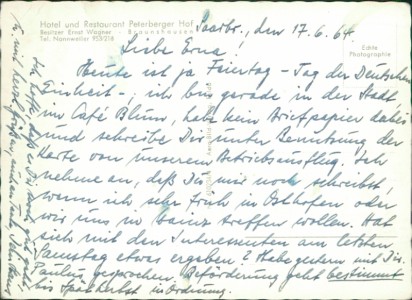 Hotel und Restaurant Peterberger Hof
Besitzer Ernst Wagner Braunshausen
Tel. Nonnweiler 953/218
Echte
Photographie
Saarbr., den 17.6.64
Liebe Erna!
Heute ist ja Feiertag - Tag der Deutschen
Einheit -, ich bin gerade in der Stadt
im Café Blum, habe kein Briefpapier dabei
und schreibe Dir unter Benutzung der
Karte von unserem Betriebsausflug. Ich
nehme an, daß Du mir noch schreibst,
wenn ich sehr früh in Osthofen oder
wir uns in Mainz treffen wollen. Hat
sich mit den Interessenten am letzten
Samstag etwas ergeben? Habe gestern mit Dir.
Paulus gesprochen. Beförderung geht bestimmt
bis Spätherbst in Ordnung.
Ich hoffe, daß es Dir